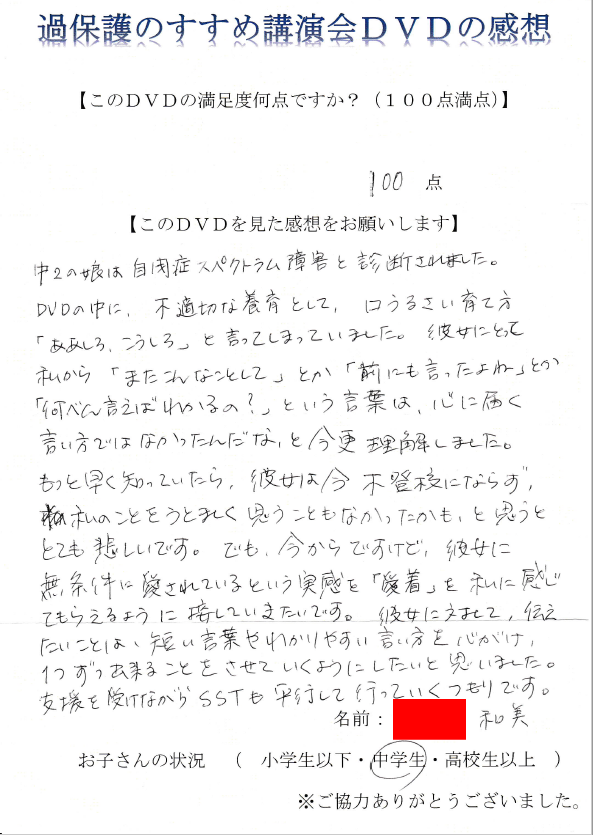 過保護のすすめ講演会DVDの感想
【このDVDの満足度何点ですか？（１００点満点）】
100 点
【このDVDを見た感想をお願いします】
中2の娘は自閉症スペクトラム障害と診断されました。
DVDの中に、不適切な養育として、口うるさい育て方
「ああしろ、こうしろ」と言ってしまっていました。彼女にとって
私から「またこんなことして」とか「前にも言ったよね」とか
「何べん言えばわかるの？」という言葉は、心に届く
言い方ではなかったんだな、と今更理解しました。
もっと早く知っていたら、彼女は今不登校にならず、
私のことをうとましく思うこともなかったかも、と思うと
とても悲しいです。でも、今からですけど、彼女に
無条件に愛されているという実感を「愛着」を私に感じ
てもらえるように接していきたいです。彼女にとって、伝え
たいことは、短い言葉やわかりやすい言い方を心がけ、
1つずつ出来ることをさせていくようにしたいと思いました。
支援を受けながらSSTも平行して行っていくつもりです。
名前： 和美
お子さんの状況 （ 小学生以下・中学生・高校生以上 ）
※ご協力ありがとうございました。